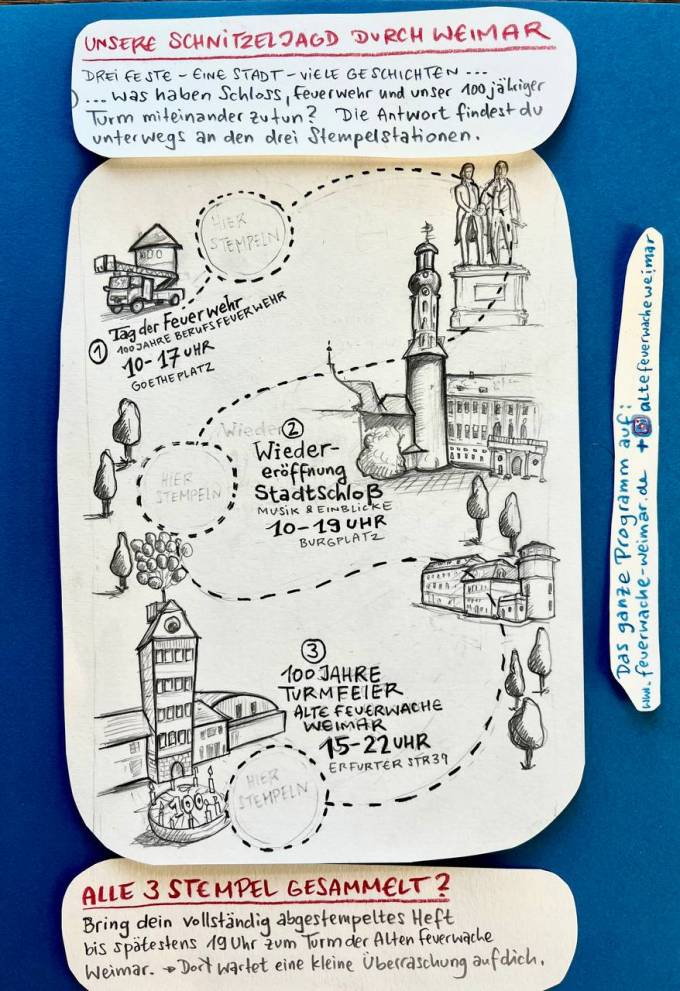 UNSERE SCHNITZELJAGD DURCH WEIMAR
DREI FESTE - EINE STADT - VIELE GESCHICHTEN ...
... was haben Schloss, Feuerwehr und unser 100 jähriger
Turm miteinander zu tun? Die Antwort findest du
unterwegs an den drei Stempelstationen.
HIER
STEMPELN
1
Tag der Feuerwehr
100 JAHRE BERUFSFEUERWEHR
10-17 UHR
GOETHEPLATZ
Wieder
2
Wieder-
eröffnung
Stadtschloß
MUSIK & EINBLICKE
10-19 UHR
BURGPLATZ
HIER
STEMPELN
3
100 JAHRE
TURMFEIER
ALTE FEUERWACHE
WEIMAR
15-22 UHR
ERFURTER STR 37
HIER
STEMPELN
100
ALLE 3 STEMPEL GESAMMELT?
Bring dein vollständig abgestempeltes Heft
bis spätestens 19 Uhr zum Turm der Alten Feuerwache
Weimar. → Dort wartet eine kleine Überraschung auf dich.
Das ganze Programm auf:
www.feuerwache-weimar.de + altefeuerwacheweimar